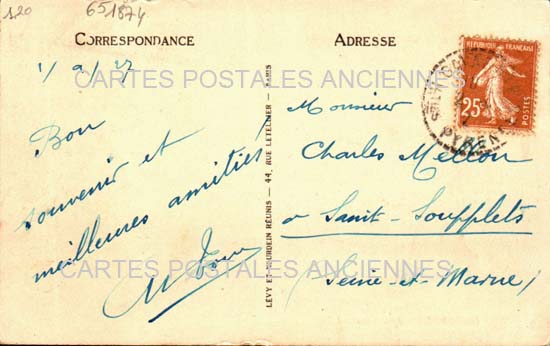 1,20
651874
CORRESPONDANCE
ADRESSE
1/9/27
CARTES POSTALES ANCIENNES
RÉPUBLIQUE FRANÇAISE
25c
POSTES
PYREN
Bon
souvenir et
meilleures amitiés
Monsieur
Charles Mellon
a Saint-Soupplets
(Seine-et-Marne)
CARTES POSTALES ANCIENNES
LÉVY ET NEURDEIN RÉUNIS - 44, RUE LETELLIER - PARIS